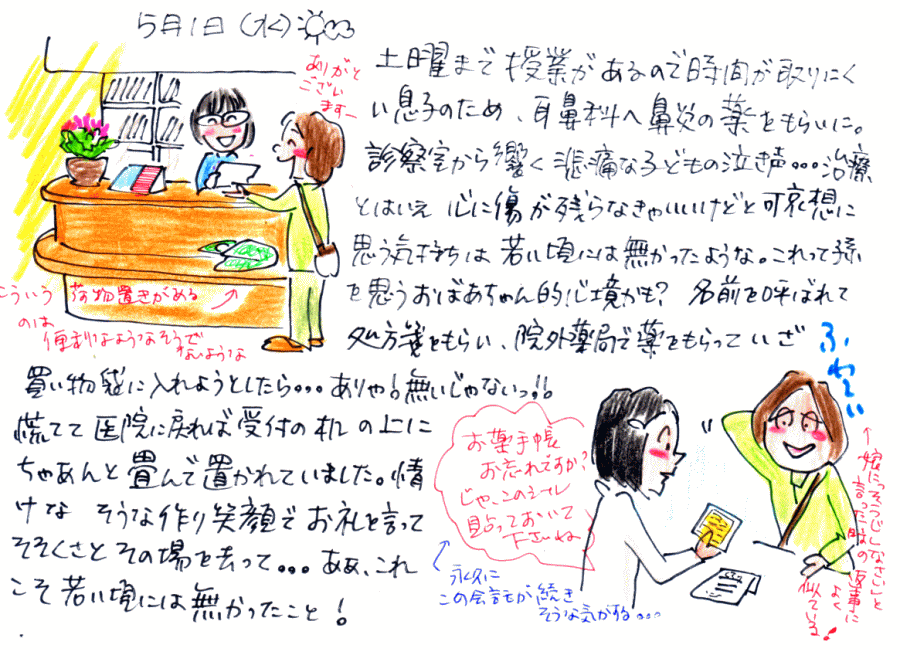 5月1日(水)
ありがと
ござい
ますー
土曜まで授業があるので時間が取りにく
い息子のため、耳鼻科へ鼻炎の薬をもらいに。
診察室から響く悲痛な子どもの泣き声…治療
とはいえ心に傷が残らなきゃいいけどと可哀想に
思う気持ちは若い頃には無かったような。これって孫
を思うおばあちゃん的心境かも?名前を呼ばれて
処方箋をもらい、院外薬局で薬をもらっていざ
買い物袋に入れようとしたら…ありゃ!無いじゃないっ!!
慌てて医院に戻れば受付の机の上に
ちゃあんと畳んで置かれていました。情
けなそうな作り笑顔でお礼を言って
そそくさとその場を去って…ああ、これ
こそ若い頃には無かったこと!
こういう荷物置きがある
のは
便利なようなそうで
ないような
お薬手帳
お忘れですか?
じゃ、このシール
貼っておいて
下さいね
永久に
この会話が続き
そうな気がする…
ふわーい
↑嫁に「そうじしなさい」と
言った時の返事に
よく
似ている!